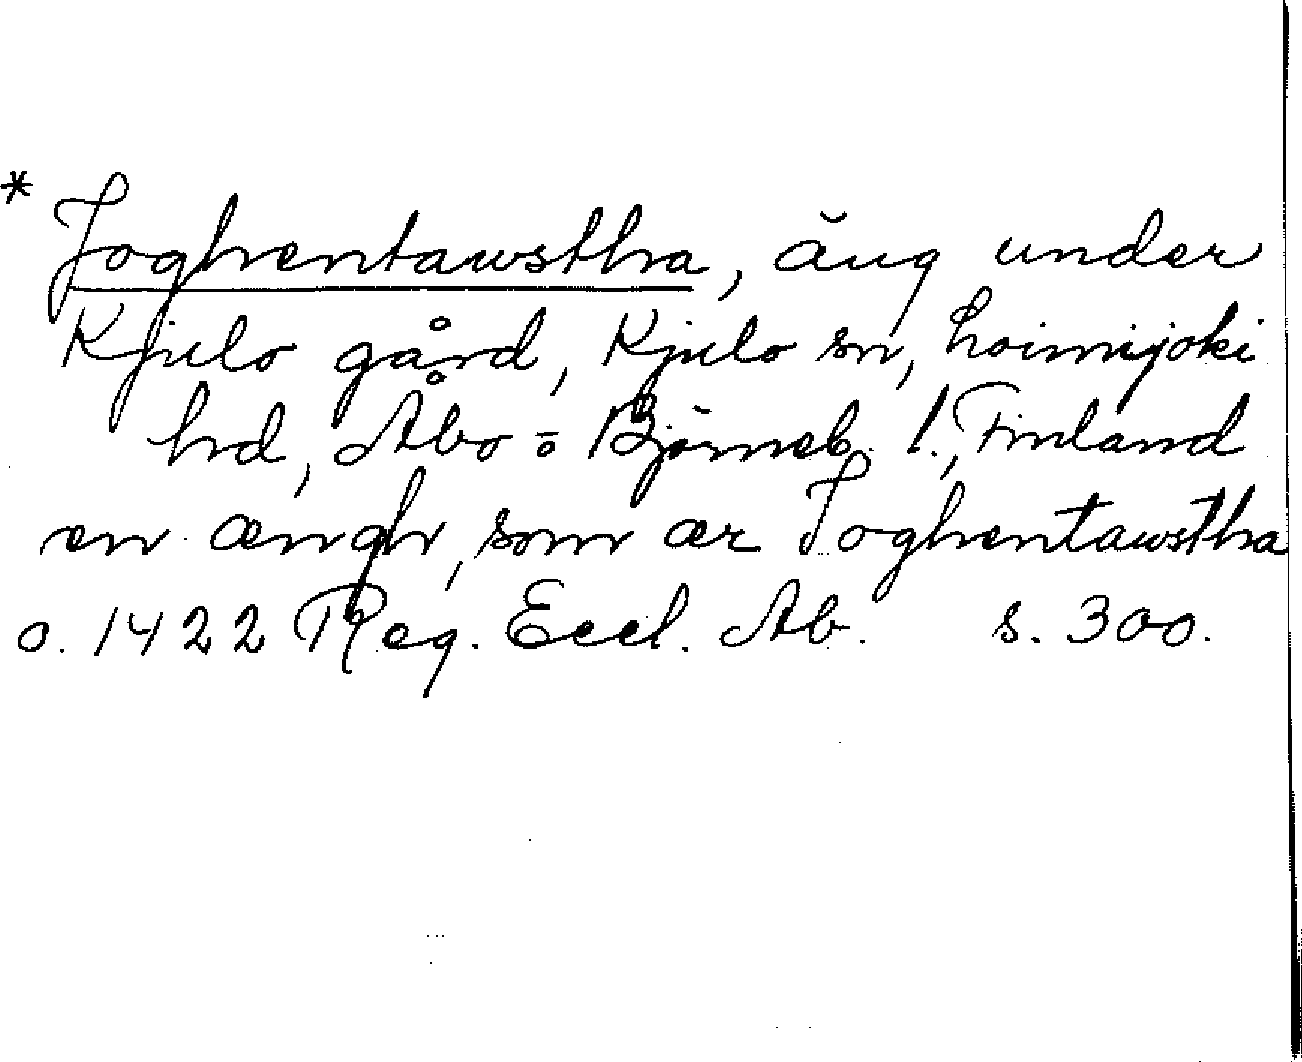 * Joghentawstha, äng under
Kjulo gård, Kjulo sn, Loimijoki
hd, Åbo = Björneb. l., Finland
en ængh, som ær Joghentawstha
o. 1422 Reg. Eccl. Ab. s. 300.